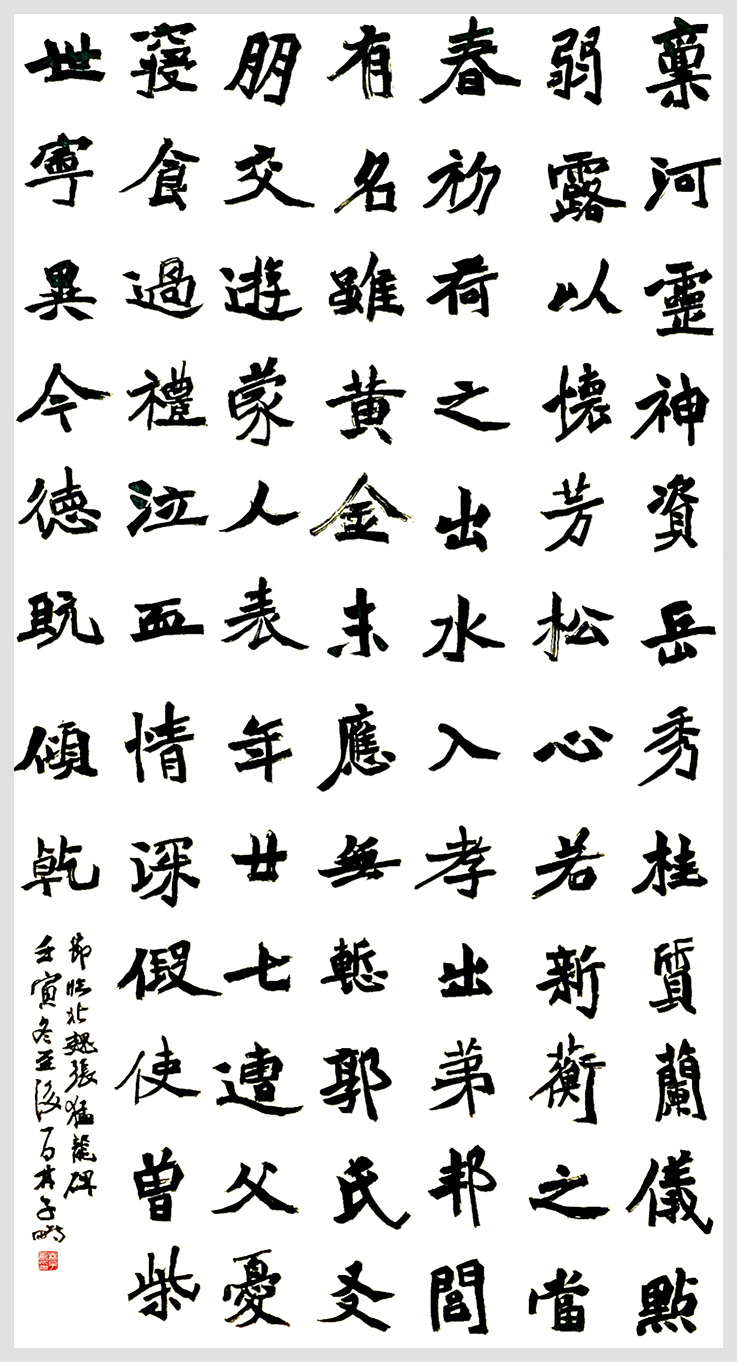 稟河靈神資岳秀桂質蘭儀點
弱露以懷芳松心若新蘅之當
春初荷之出水入孝出第邦閭
有名雖黃金未應無慙郭氏友
朋交遊蒙人表年廿七遭父憂
寢食過禮泣血情深假使曾柴
世寧異今德既傾乾
節臨北魏張猛龍碑
壬寅冬